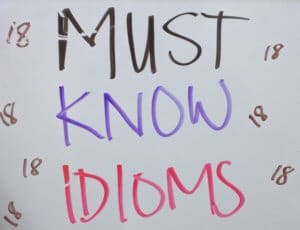 18 MUST 18
18 KNOW 18
18 IDIOMS 18
18